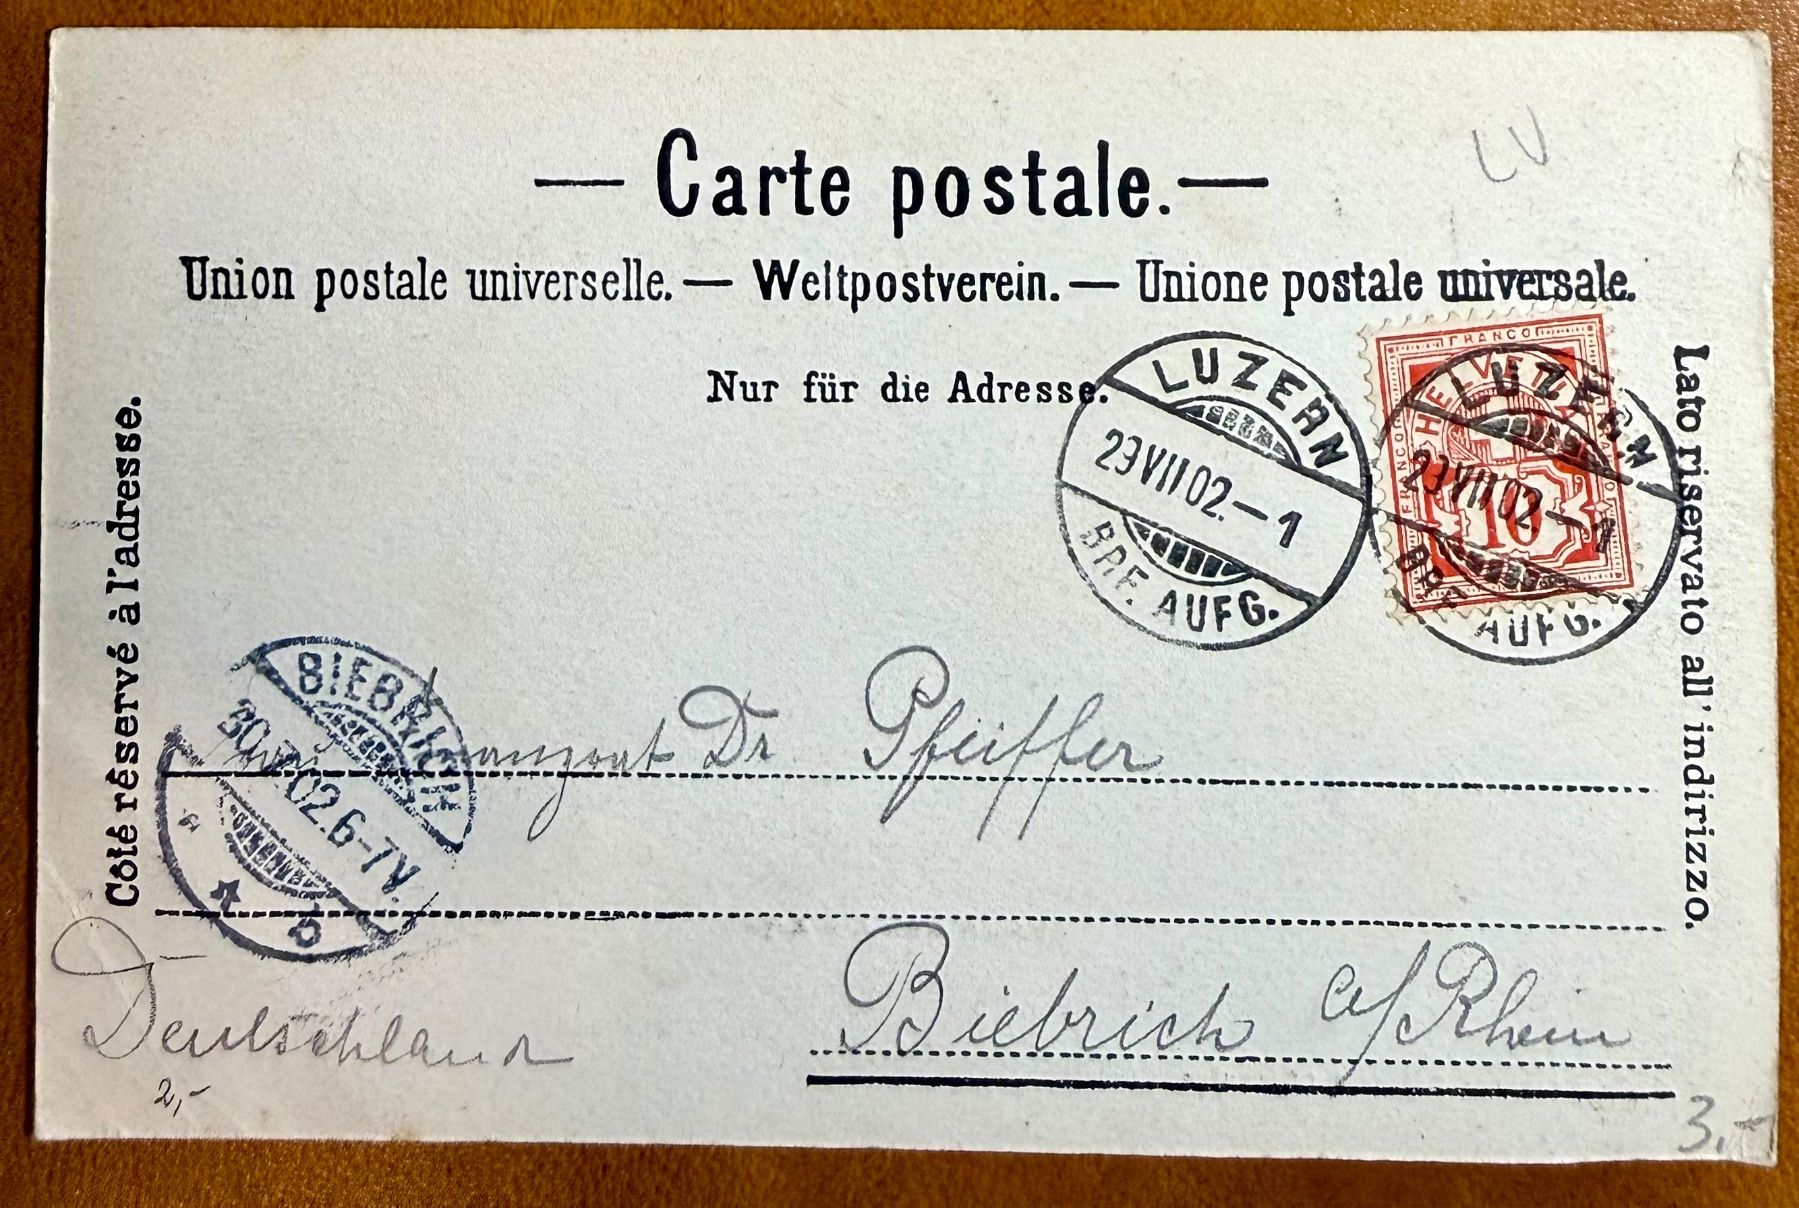 LV
— Carte postale. —
Union postale universelle. — Weltpostverein. — Unione postale universale.
Nur für die Adresse.
Côté réservé à l'adresse.
Lato riservato all' indirizzo.
LUZERN
29 VII 02. – 1
BRF. AUFG.
FRANCO
FRANCO
HELVETIA
10
LUZERN
29 VII 02 – 1
BRF. AUFG.
BIEBRICH
30.7.02. 6-7V.
* * b
Dr Pfeiffer
Biebrich a/Rhein
Deutschland
2,-
3.-